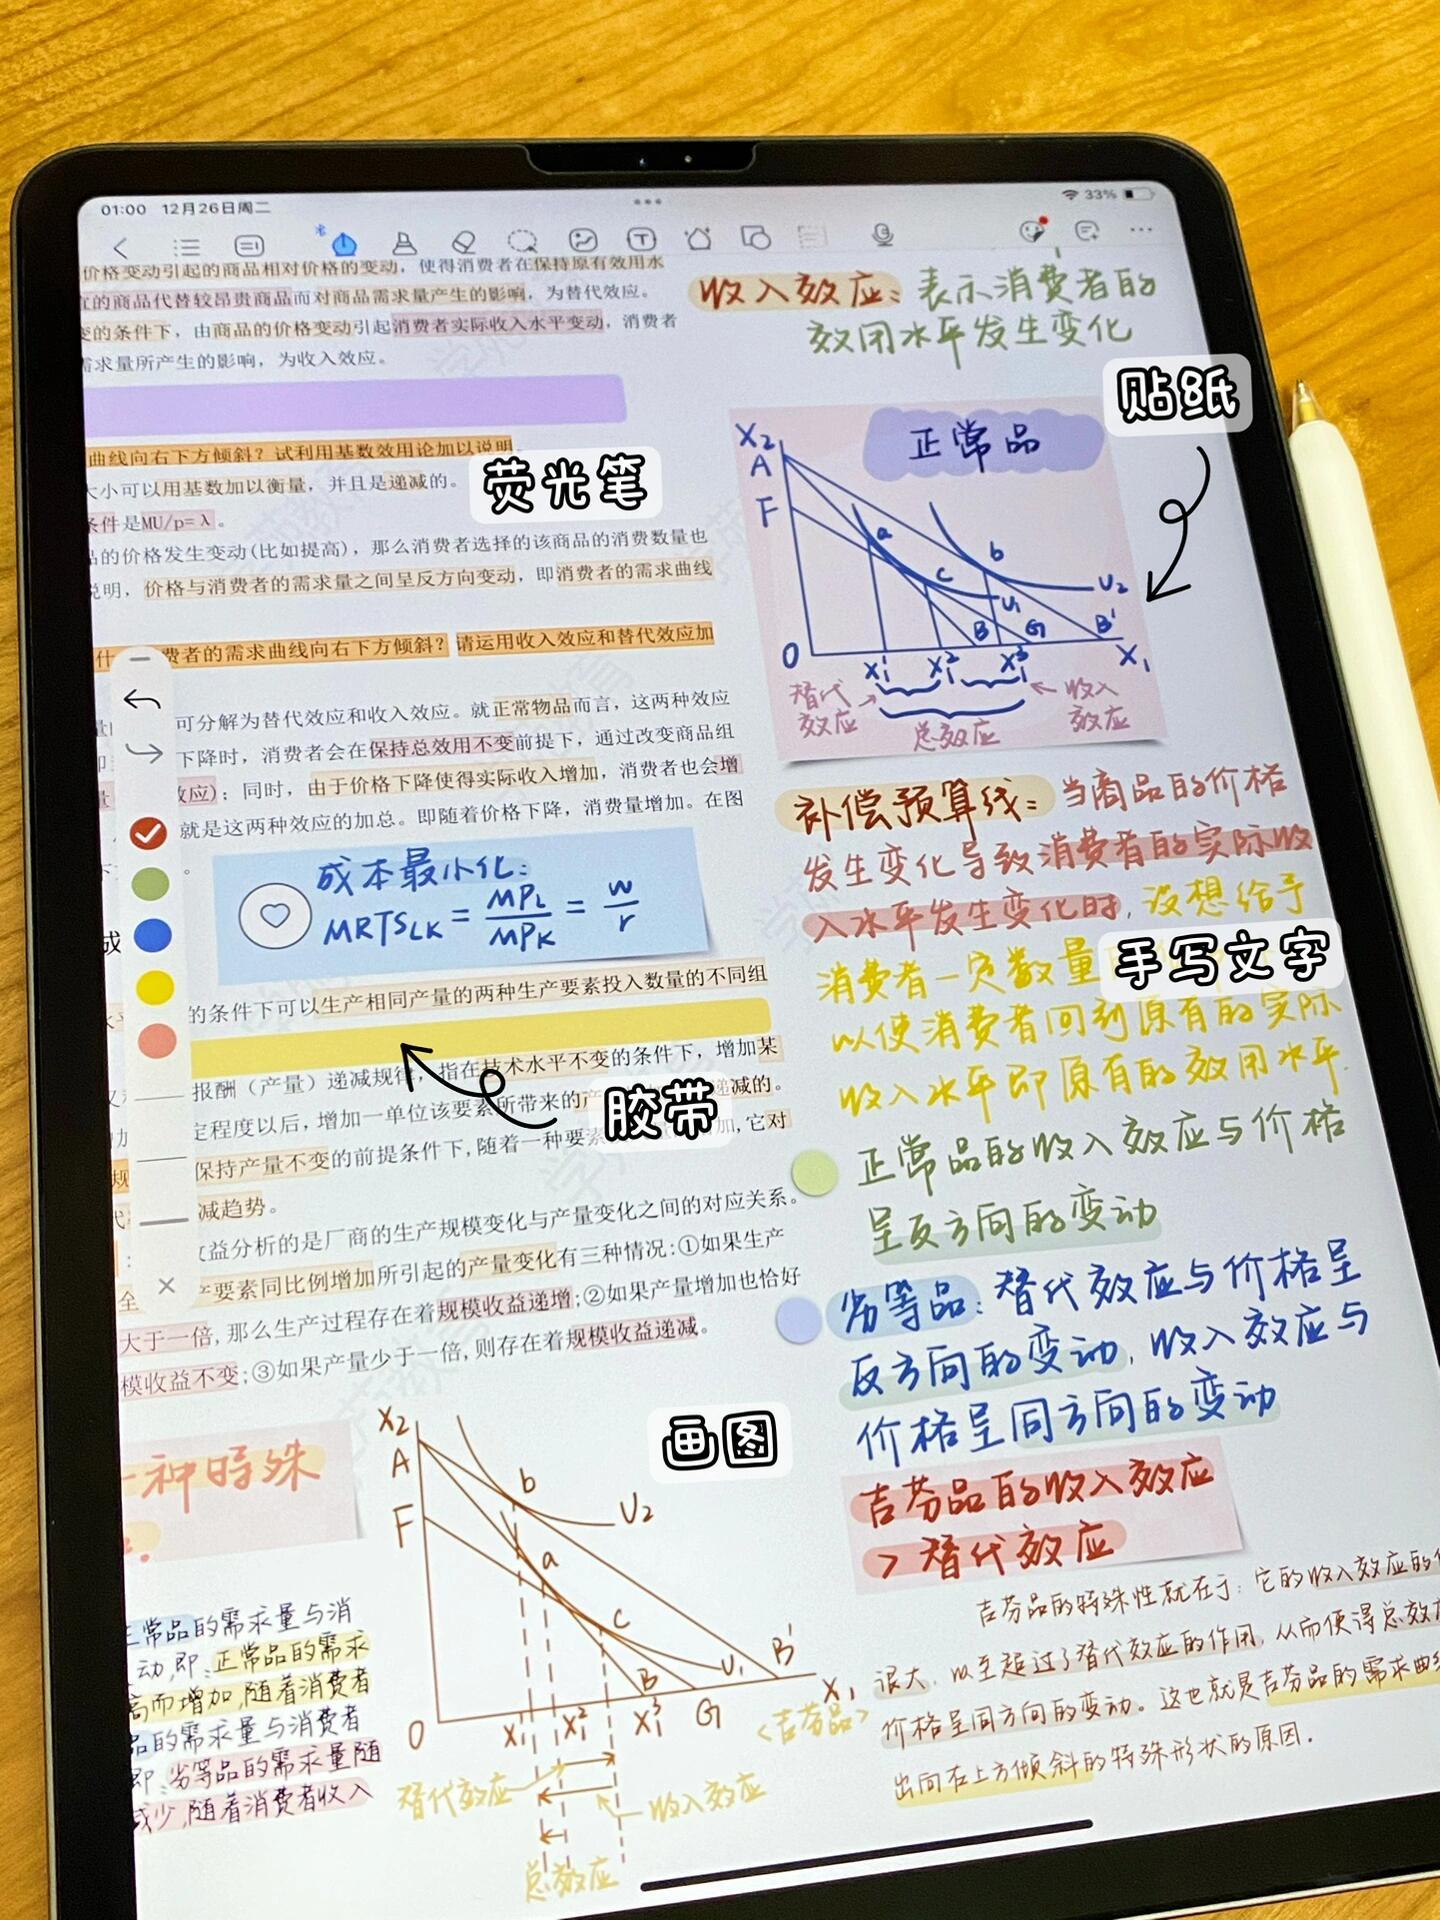 01:00 12月26日周二
33%
价格变动引起的商品相对价格的变动，使得消费者在保持原有效用水
宜的商品代替较昂贵商品而对商品需求量产生的影响，为替代效应。
变的条件下，由商品的价格变动引起消费者实际收入水平变动，消费者
需求量所产生的影响，为收入效应。
曲线向右下方倾斜？试利用基数效用论加以说明。
大小可以用基数加以衡量，并且是递减的。
条件是MU/p=λ。
品的价格发生变动(比如提高)，那么消费者选择的该商品的消费数量也
说明，价格与消费者的需求量之间呈反方向变动，即消费者的需求曲线
费者的需求曲线向右下方倾斜？请运用收入效应和替代效应加
可分解为替代效应和收入效应。就正常物品而言，这两种效应
下降时，消费者会在保持总效用不变前提下，通过改变商品组
效应)；同时，由于价格下降使得实际收入增加，消费者也会增
就是这两种效应的加总。即随着价格下降，消费量增加。在图
成本最小化：
MRTS_LK = MP_L/MP_K = w/r
的条件下可以生产相同产量的两种生产要素投入数量的不同组
报酬（产量）递减规律，指在技术水平不变的条件下，增加某
定程度以后，增加一单位该要素所带来的产
递减的。
保持产量不变的前提条件下,随着一种要素
加,它对
减趋势。
益分析的是厂商的生产规模变化与产量变化之间的对应关系。
要素同比例增加所引起的产量变化有三种情况:①如果生产
大于一倍,那么生产过程存在着规模收益递增;②如果产量增加也恰好
模收益不变;③如果产量少于一倍,则存在着规模收益递减。
荧光笔
胶带
画图
一种特殊
正常品的需求量与消
动,即:正常品的需求
高而增加,随着消费者
品的需求量与消费者
即:劣等品的需求量随
减少,随着消费者收入
X₂
A
F
b
U₂
a
c
U₁
B
B'
O
X₁¹ X₁² X₁³ G X₁
<吉芬品>
替代效应
收入效应
总效应
收入效应：表示消费者的
效用水平发生变化
贴纸
正常品
X₂
A
F
a
b
c
U₂
U₁
B G B'
O
X₁¹ X₁² X₁³ X₁
替代
效应
总效应
收入
效应
补偿预算线：当商品的价格
发生变化导致消费者的实际收
入水平发生变化时，设想给予
消费者一定数量
手写文字
以使消费者回到原有的实际
收入水平即原有的效用水平.
正常品的收入效应与价格
呈反方向的变动
劣等品：替代效应与价格呈
反方向的变动，收入效应与
价格呈同方向的变动
吉芬品的收入效应
>替代效应
吉芬品的特殊性就在于：它的收入效应的作
很大，以至超过了替代效应的作用，从而使得总效应
价格呈同方向的变动。这也就是吉芬品的需求曲线
出向右上方倾斜的特殊形状的原因.